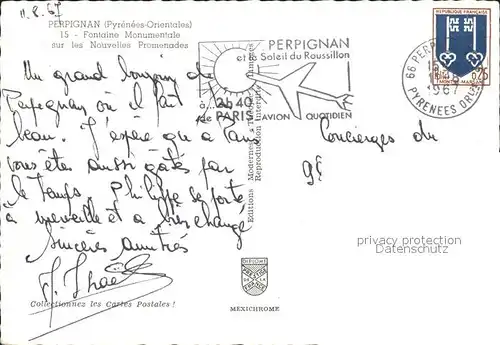 11.8.67
PERPIGNAN (Pyrénées-Orientales)
15 - Fontaine Monumentale
sur les Nouvelles Promenades
Un grand bonjour de
Perpignan où il fait
beau. J'espère qu'à Paris
vous êtes aussi gâtés par
le temps. Philippe se porte
à merveille et a bien changé
Sincères amitiés
Collectionnez les Cartes Postales !
PERPIGNAN
et le Soleil du Roussillon
à 2h40
de PARIS
AVION QUOTIDIEN
Editions Modernes
Reproduction Interdite
DIPLOME
MEXICHROME
REPUBLIQUE FRANCAISE
0,25
MONT-DE-MARSAN
66 PERP
1967
PYRENEES ORLES
Concierges du
privacy protection
Datenschutz